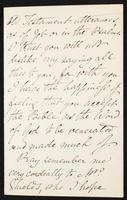 Old Testament utterances,
as of Job or in the Psalms
I trust you will not
dislike my saying all
this to you, for with you
I have the happiness of
feeling that you accept
the Bible as the Word
of God to be venerated
and made much of.
Pray remember me
very cordially to Mrs
Shields, who I hope